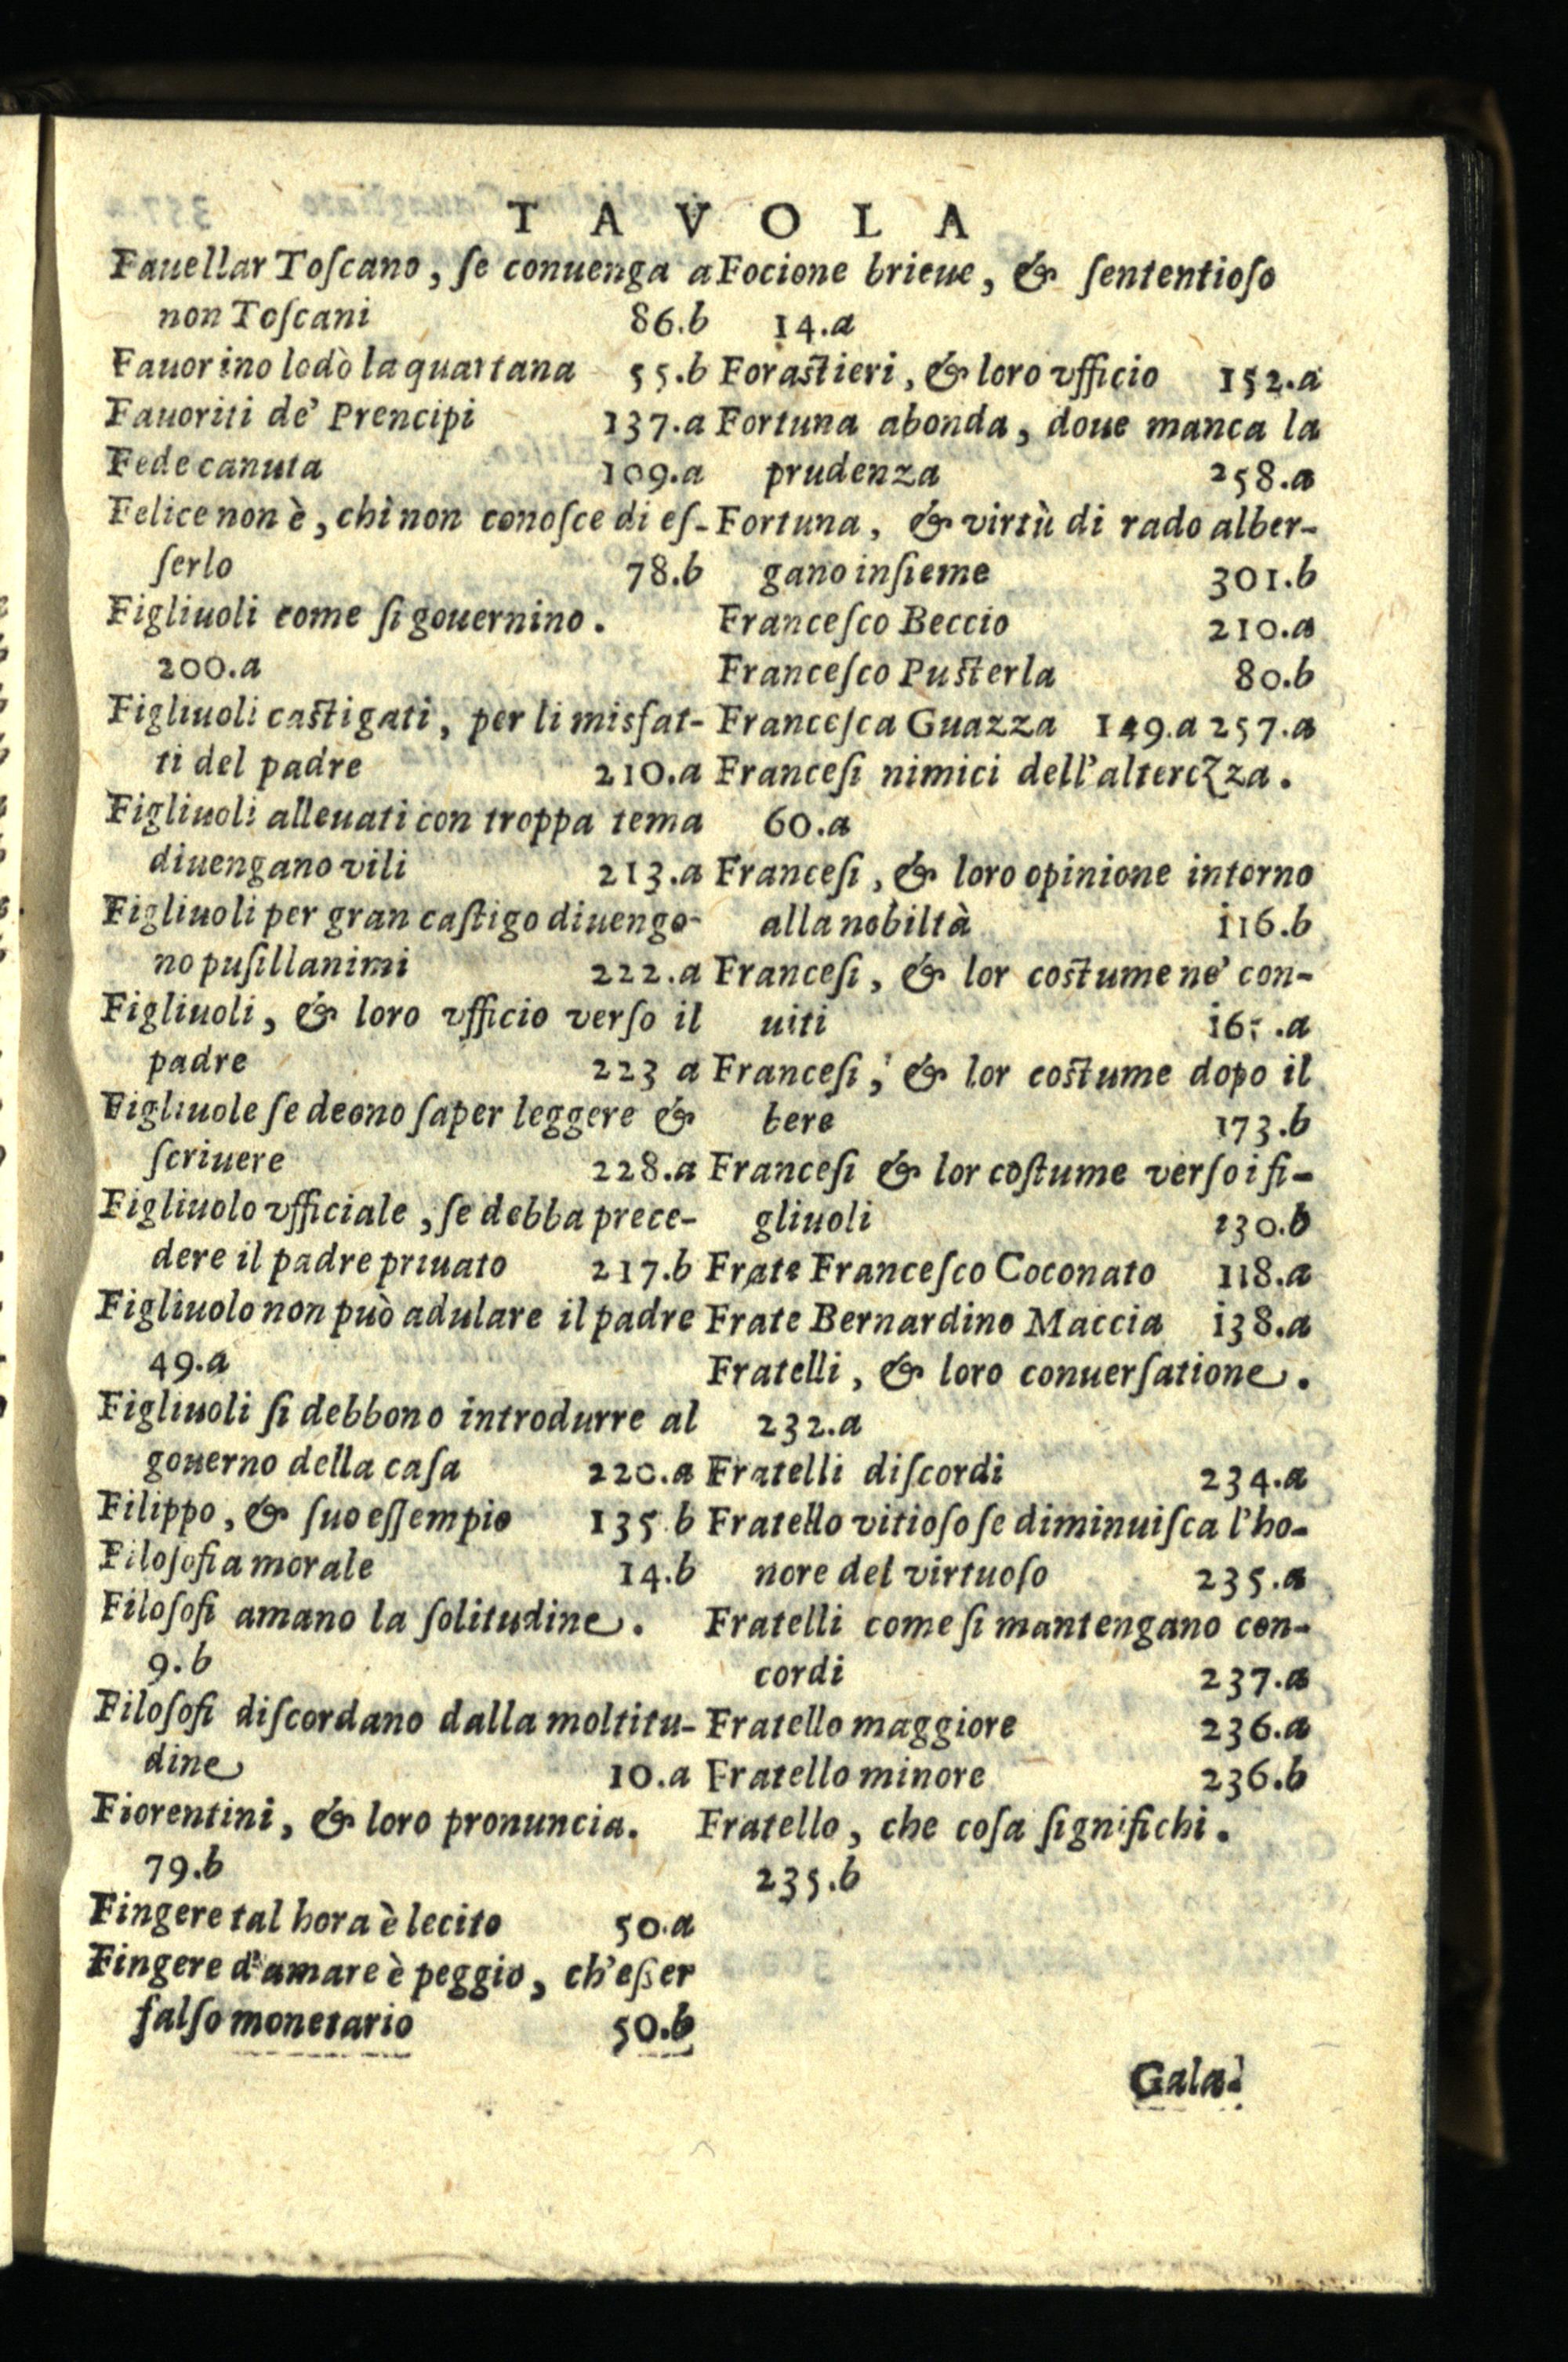 TAVOLA
Fauellar Toſcano, ſe conuenga a
non Toſcani 86.b
Fauorino lodò la quartana 55.b
Fauoriti de' Prencipi 137.a
Fede canuta 109.a
Felice non è, chi non conoſce di eſ-
ſerlo 78.b
Figliuoli come ſi gouernino.
200.a
Figliuoli caſtigati, per li misfat-
ti del padre 210.a
Figliuoli alleuati con troppa tema
diuengano vili 213.a
Figliuoli per gran caſtigo diuengo-
no puſillanimi 222.a
Figliuoli, & loro vfficio verſo il
padre 223 a
Figliuole ſe deono ſaper leggere &
ſcriuere 228.a
Figliuolo vfficiale, ſe debba prece-
dere il padre priuato 217.b
Figliuolo non può adulare il padre
49.a
Figliuoli ſi debbono introdurre al
gouerno della caſa 220.a
Filippo, & ſuo eſſempio 135 b
Filoſofia morale 14.b
Filoſofi amano la ſolitudine.
9.b
Filoſofi diſcordano dalla moltitu-
dine 10.a
Fiorentini, & loro pronuncia.
79.b
Fingere tal hora è lecito 50.a
Fingere d'amare è peggio, ch'eſſer
falſo monetario 50.b
Focione brieue, & ſententioſo
14.a
Foraſtieri, & loro vfficio 152.a
Fortuna abonda, doue manca la
prudenza 258.a
Fortuna, & virtù di rado alber-
gano inſieme 301.b
Franceſco Beccio 210.a
Franceſco Puſterla 80.b
Franceſca Guazza 149.a 257.a
Franceſi nimici dell'alterezza.
60.a
Franceſi, & loro opinione intorno
alla nobiltà 116.b
Franceſi, & lor coſtume ne' con-
uiti
Franceſi, & lor coſtume dopo il
bere 173.b
Franceſi & lor coſtume verſo i fi-
gliuoli 230.b
Frate Franceſco Coconato 118.a
Frate Bernardino Maccia 138.a
Fratelli, & loro conuerſatione.
232.a
Fratelli diſcordi 234.a
Fratello vitioſo ſe diminuiſca l'ho-
nore del virtuoſo 235.a
Fratelli come ſi mantengano con-
cordi 237.a
Fratello maggiore 236.a
Fratello minore 236.b
Fratello, che coſa ſignifichi.
235.b
Gala-